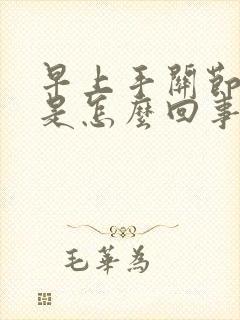 早上手關節
是怎麼回事
毛華為